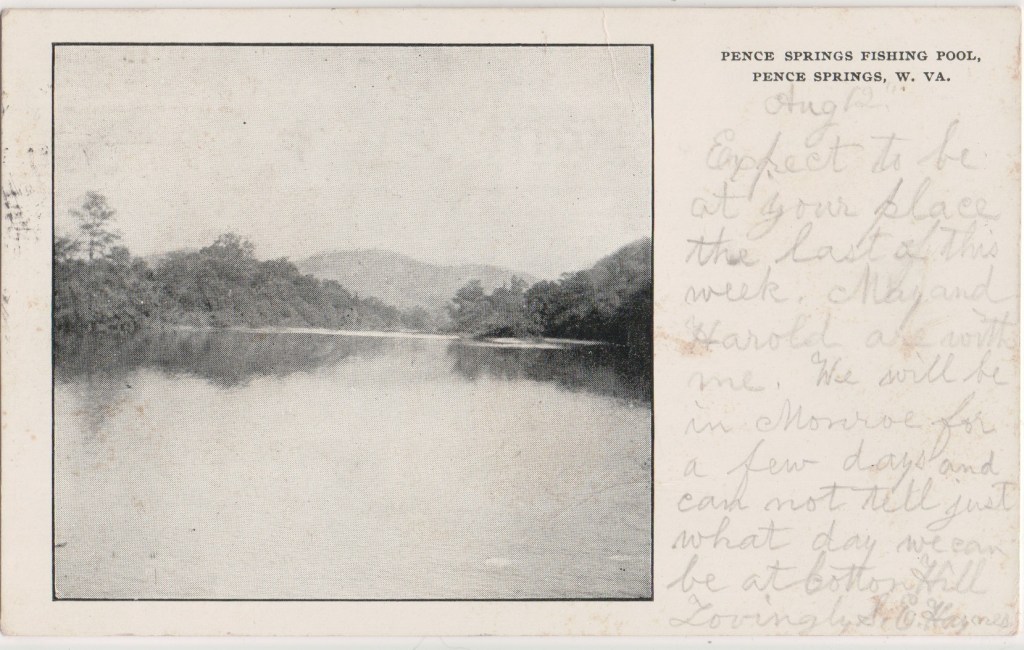 PENCE SPRINGS FISHING POOL,
PENCE SPRINGS, W. VA.
Aug 12
Expect to be
at your place
the last of this
week. May and
Harold are with
me. We will be
in Monroe for
a few days and
can not tell just
what day we can
be at Cotton Hill
Lovingly S. C. Haynes